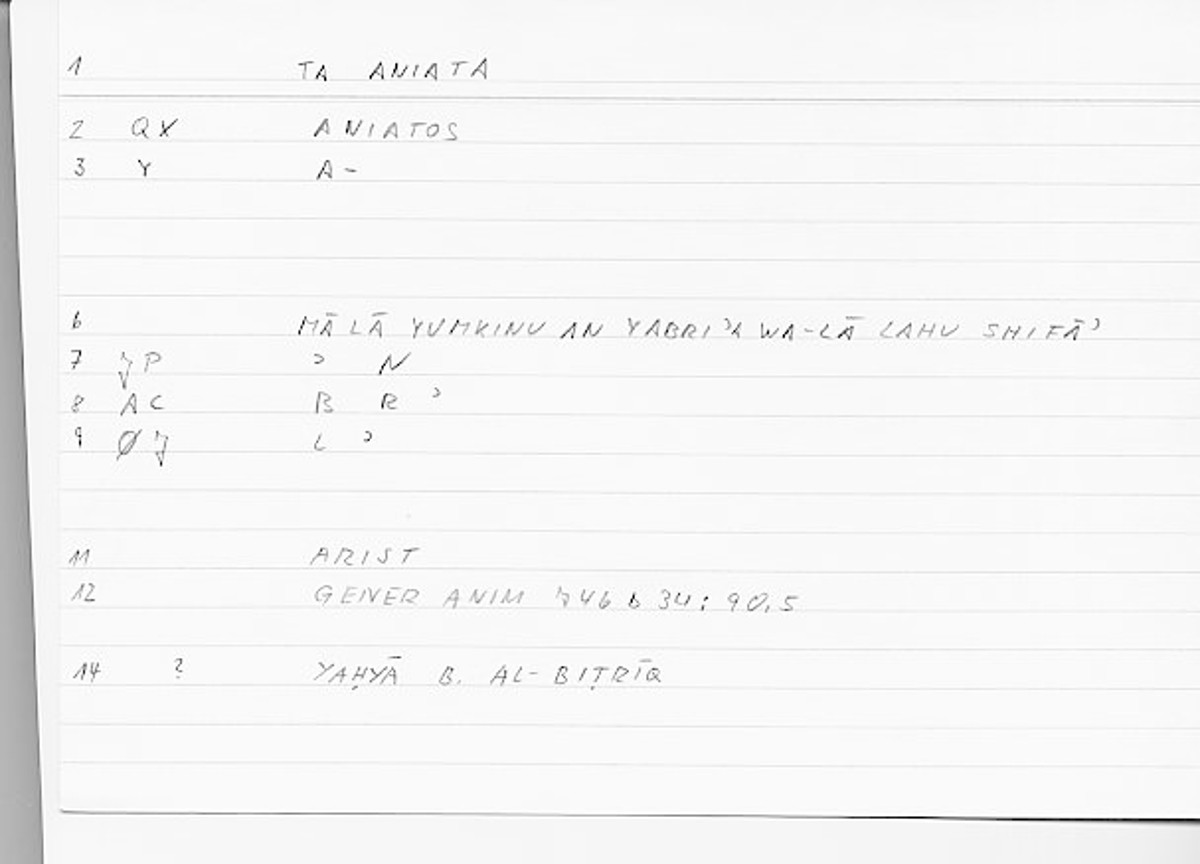 1 TA ANIATA
2 QX ANIATOS
3 Y A-
6 MĀ LĀ YUMKINU AN YABRI'A WA-LĀ LAHU SHIFĀ'
7 JP ' N
8 AC B R '
9 ØJ L '
11 ARIST
12 GENER ANIM 746 b 34 : 90,5
14 ? YAḤYĀ B. AL-BIṬRĪQ